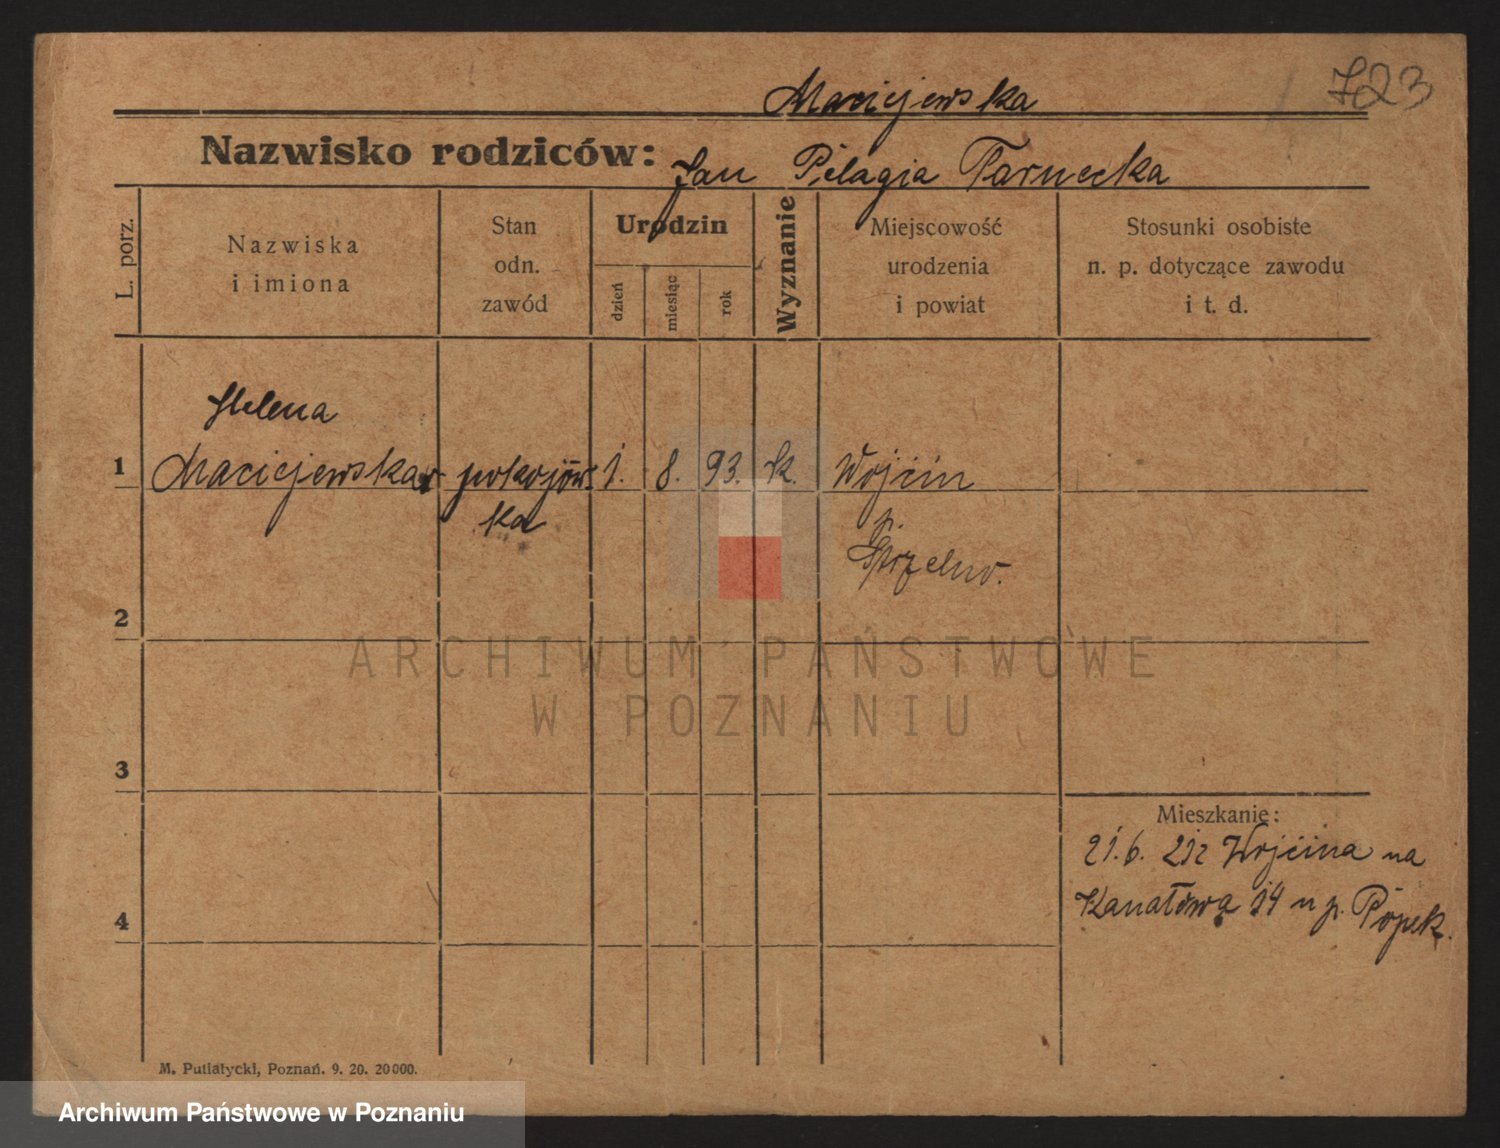 Maciejewska
723
Nazwisko rodziców: Jan Pelagia Tarnecka
L. porz.
Nazwiska
i imiona
Stan
odn.
zawód
Urodzin
dzień
miesiąc
rok
Wyznanie
Miejscowość
urodzenia
i powiat
Stosunki osobiste
n. p. dotyczące zawodu
i t. d.
Helena
1 Maciejewska pokojów- 1. 8. 93. k. Wojcin
ka
p.
Strzelno.
2
ARCHIWUM PAŃSTWOWE
W POZNANIU
3
Mieszkanie:
21.6. 21 z Wojcina na
4 Kanałową 14 u p. Popek.
M. Putiatycki, Poznań. 9. 20. 20000.
Archiwum Państwowe w Poznaniu